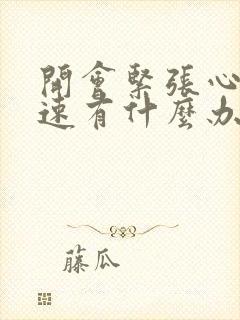 開會緊張心
速有什麼办
藤瓜